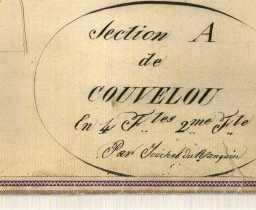 Section A
de
COUVELOU
En 4 F.les 2.me F.le
Par